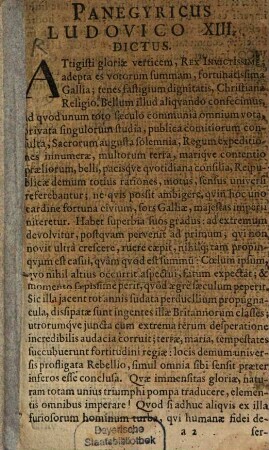 PANEGYRICUS
LUDOVICO XIII.
DICTUS.
ATtigisti gloriæ verticem, REX INVICTISSIME,
adepta es votorum summam, fortunatissima
Gallia; tenes fastigium dignitatis, Christiana
Religio. Bellum illud aliquando confecimus,
ad quod unum toto sæculo communia omnium vota,
privata singulorum studia, publica comitiorum con-
sulta, Sacrorum augusta solemnia, Regum expeditio-
nes innumeræ, multorum terra, marique contentio
præliorum, belli, pacisque quotidiana consilia, Reipu-
blicæ demum totius rationes, motus, sensus universi
referebantur; ne quis possit ambigere, quin hoc uno
cardine fortuna civium, sors Galliæ, majestas imperii
niteretur. Habet superbia suos gradus: ad extremum
devolvitur, postquam pervenit ad primum; qui non
novit ultra crescere, ruere cæpit, nihil quam propin-
quum est casui, quàm quod est summũ: Cœlum ipsum,
quo nihil altius occurrit aspectui, fatum expectat; &
momento sæpissime perit, quod ægre sæculum peperit.
Sic illa jacent tot annis sudata perduellium propugna-
cula, dissipatæ sunt ingentes illæ Britannorum classes;
utrorumque juncta cum extrema rerum desperatione
incredibilis audacia corruit; terræ, maria, tempestates
succubuerunt fortitudini regiæ: locis demum univer-
sis profligata Rebellio, simul omnia sibi sensit præter
inferos esse conclusa. Quæ immensitas gloriæ, natu-
ram totam unius triumphi pompa traducere, elemen-
tis omnibus imperare! Quod si adhuc aliquis ex illa
furiosorum hominum turba, qui humanæ fidei de-
a 2 ser-
Bayerische
Staatsbibliothek